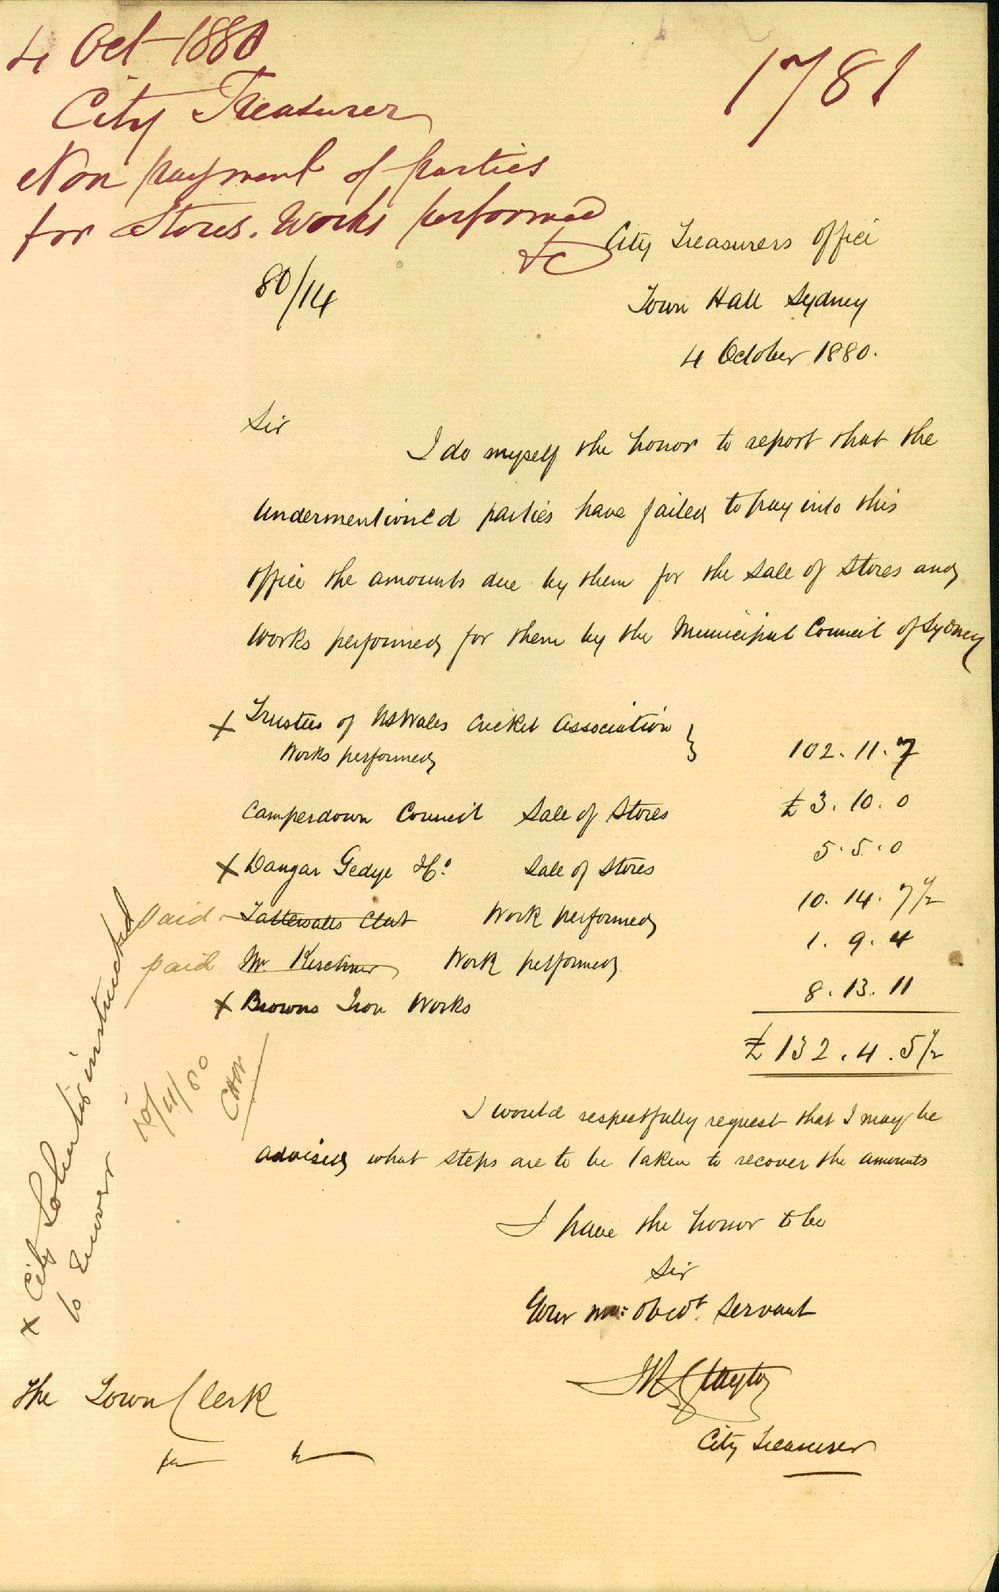 4 Oct 1880
City Treasurer
Non payment of parties
for Stores. Works performed
&c
1781
80/14
City Treasurers Office
Town Hall Sydney
4 October 1880.
Sir
I do myself the honor to report that the
undermentioned parties have failed to pay into this
office the amounts due by them for the sale of stores and
works performed for them by the Municipal Council of Sydney
x Trustees of NSWales Cricket Association }
Works performed 102. 11. 7
Camperdown Council Sale of Stores £3. 10. 0
x Dangar Gedye & Co. Sale of Stores 5. 5. 0
paid Tattersalls Club Work performed 10. 14. 7½
paid Mr Kirchner Work performed 1. 9. 4
x Browns Iron Works 8. 13. 11
£132. 4. 5½
I would respectfully request that I may be
advised what steps are to be taken to recover the amounts
I have the honor to be
Sir
Your obedt. Servant
City Treasurer
The Town Clerk
x City Solicitor instructed
to recover